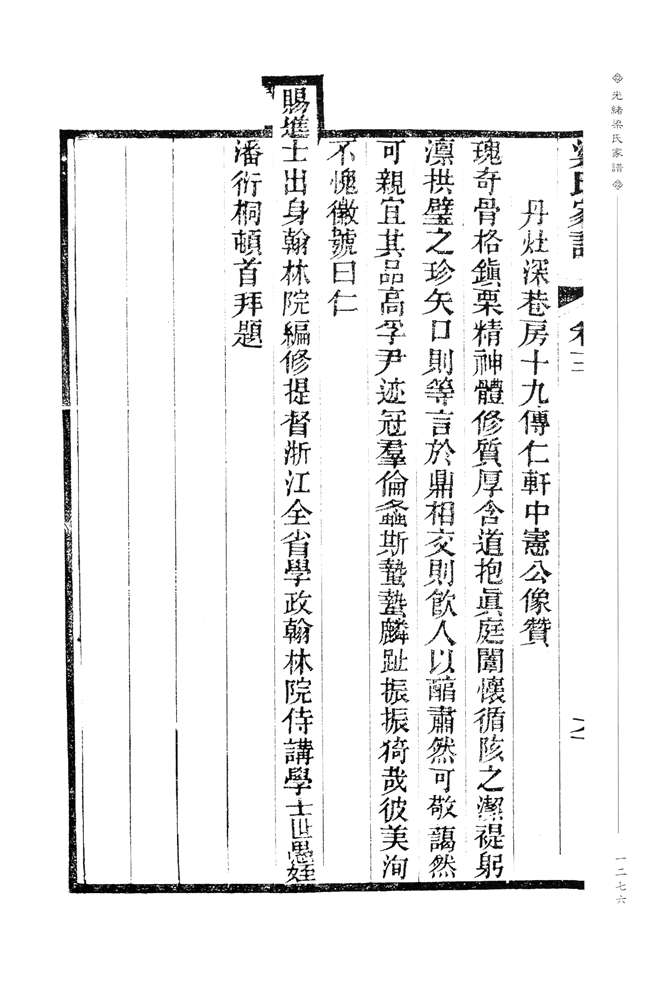 光緒梁氏家譜
一二七六
梁氏家譜 卷三
丹灶深巷房十九傳仁軒中憲公像贊
瑰奇骨格鎮栗精神體修質厚含道抱眞庭闈懷循陔之潔禔躬
凛拱璧之珍矢口則等言於鼎相交則飮人以醕肅然可敬藹然
可親宜其品高孚尹迹冠羣倫螽斯蟄蟄麟趾振振猗哉彼美洵
不愧徽號曰仁
賜進士出身翰林院編修提督浙江全省學政翰林院侍講學士世愚姪
潘衍桐頓首拜題